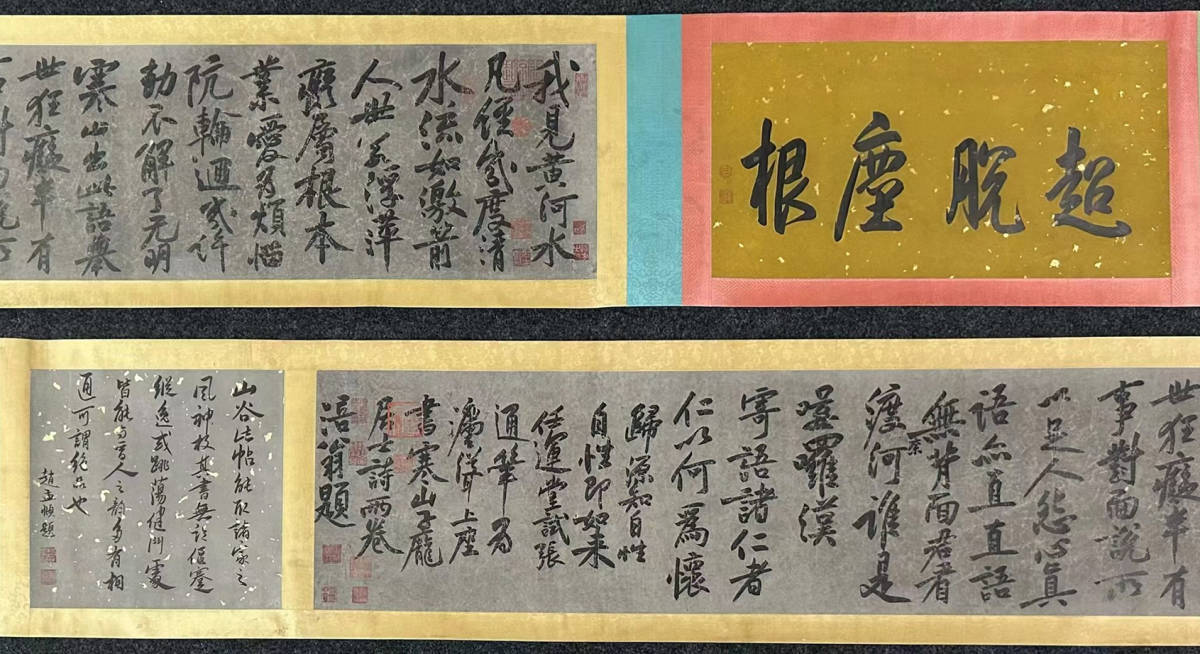 超脫塵根
我見黃河水
凡經幾度清
水流如激箭
人世若浮萍
癡屬根本
業愛為煩惱
阬輪迴幾許
劫不解了元明
寒山出此語舉
世狂癡半有
事對面說所
世狂癡半有
事對面說所
以足人怨心真
語亦直直語
無背面君看
渡奈河誰是
嘍羅漢
寄語諸仁者
仁以何為懷
歸源知自性
自性即如來
任運堂試張
通筆為
灋聳上座
書寒山子龐
居士詩兩卷
涪翁題
山谷此帖能取諸家之
風神故其書無論偃蹇
縱逸或跳蕩健鬥處
皆能與晉人之韵多有相
通可謂絕品也
趙孟頫題